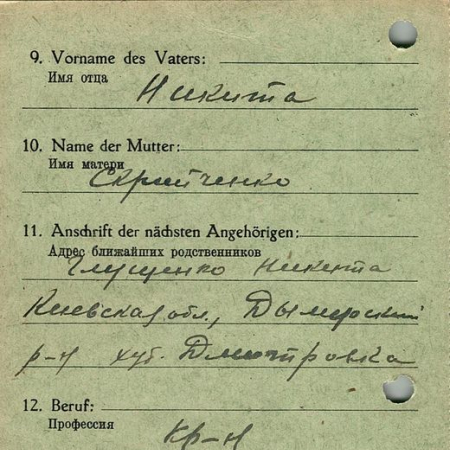 9. Vorname des Vaters:
Имя отца
Никита
10. Name der Mutter:
Имя матери
11. Anschrift der nächsten Angehörigen:
Адрес ближайших родственников
Глущенко Никита
Киевская обл., Дымерский
р-н хут. Дмитровка
12. Beruf:
Профессия
кр-н